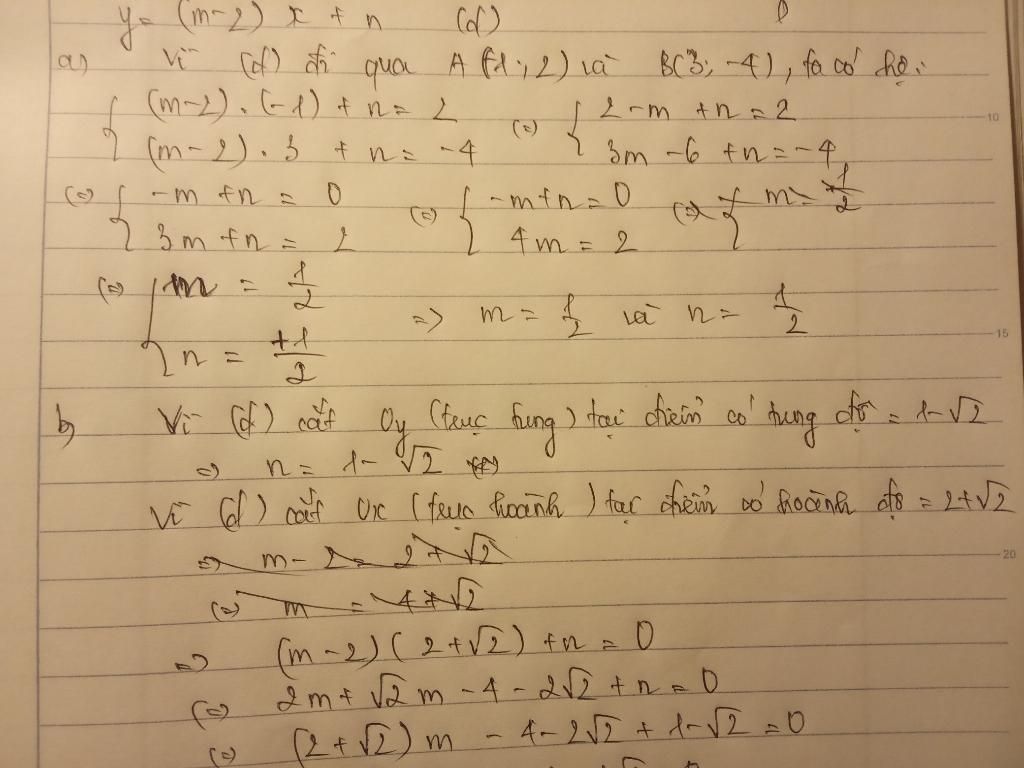 y = (m-2) x + n (d)
a) Vì (d) đi qua A (-1; 2) và B(3; -4), ta có hệ:
{ (m-2).(-1) + n = 2 (=) { 2-m +n = 2
(m-2).3 + n = -4 3m -6 +n = -4
(=) { -m +n = 0 (=) { -m+n = 0 (=) { m = 1/2
3m +n = 2 4m = 2
(=) { m = 1/2 => m = 1/2 và n = 1/2
n = +1/2
b) Vì (d) cắt Oy (trục tung) tại điểm có tung độ = 1-√2
=> n = 1-√2
Vì (d) cắt Ox (trục hoành) tại điểm có hoành độ = 2+√2
=> m - 2 = 2 + √2
(=) m = 4+√2
=> (m-2)(2+√2) +n = 0
(=) 2m+√2m -4-2√2 +n = 0
(=) (2+√2)m -4-2√2 + 1-√2 = 0
10
15
20